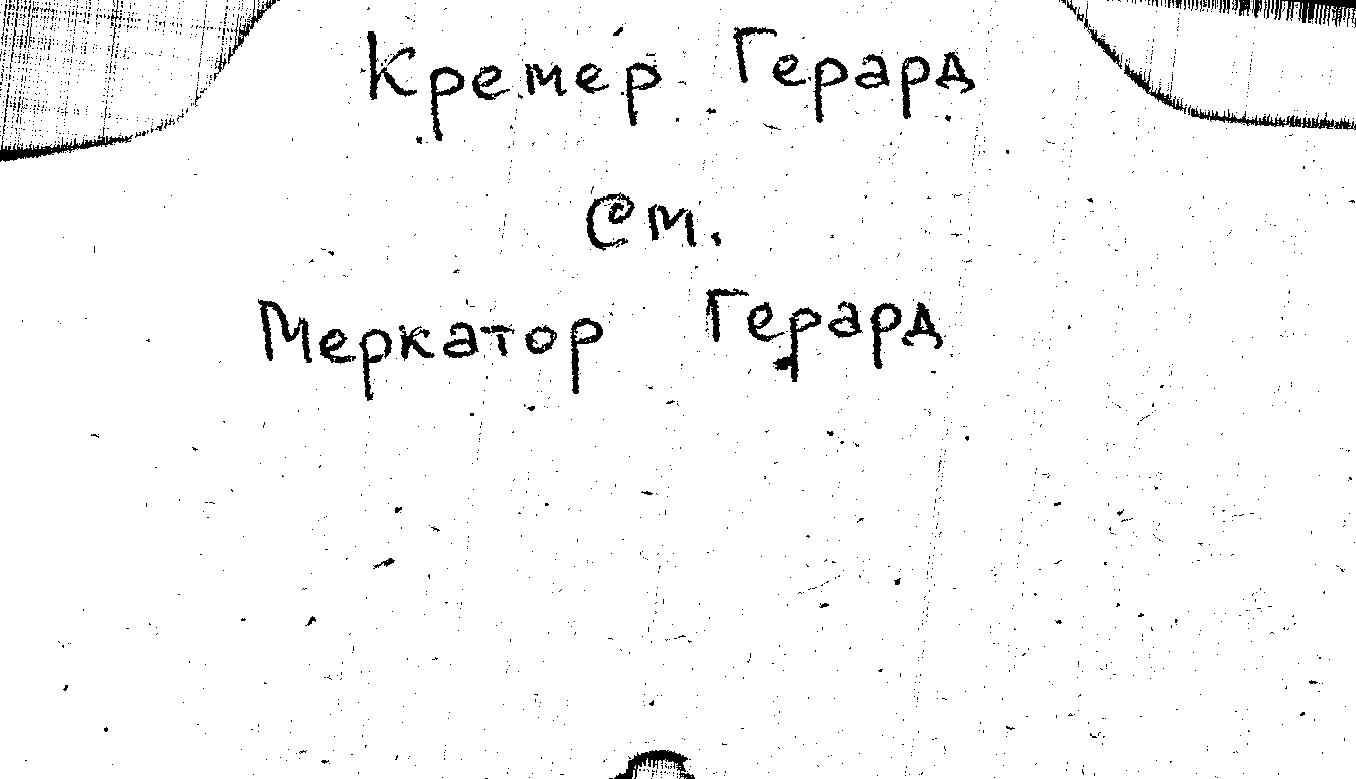 Кремер Герард
См.
Меркатор Герард